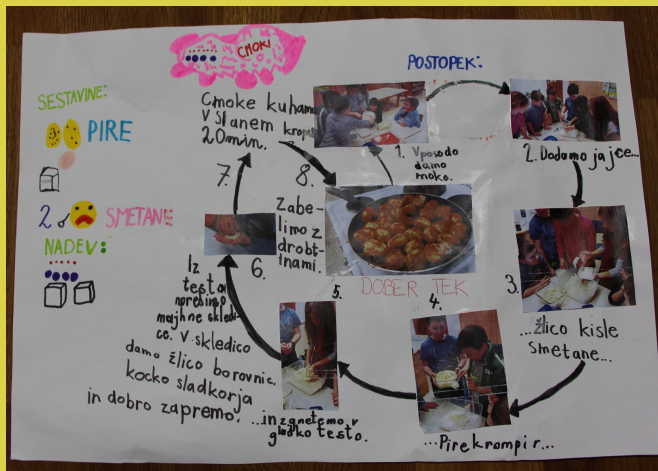 CMOKI
POSTOPEK:
SESTAVINE:
PIRE
2 SMETANE
NADEV:
1. V posodo
damo
moko.
2. Dodamo jajce...
3.
...žlico kisle
smetane...
4.
...Pire krompir...
5.
...in zgnetemo v
gladko testo.
6.
Iz
testa
naredimo
majhne skledi-
ce. V skledico
damo žlico borovnic,
kocko sladkorja
in dobro zapremo.
7.
Cmoke kuhamo
v slanem kropu
20min.
8.
Zabe-
limo z
drobt-
inami.
DOBER TEK